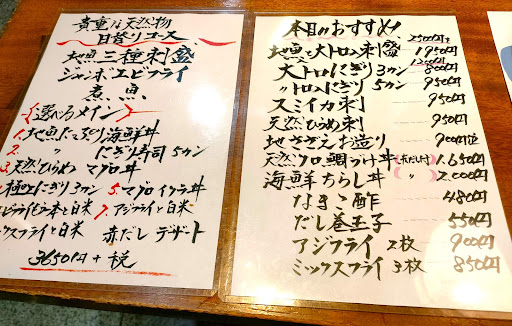 貴重な天然物
日替りコース
地魚三種刺盛
ジャンボエビフライ
煮魚
〈選べるメイン〉
1. 地魚たっぷり海鮮丼
2. 〃 にぎり寿司 5カン
3. 天然ひらめ マグロ丼
極上にぎり3カン 5. マグロイクラ丼
ビフライ2本と白米 7. アジフライと白米
ックスフライと白米 赤だし デザート
3650円+税
本日のおすすめ!
2500円
地魚と大トロ入刺盛 1950円
1200円
大トロにぎり3カン 800円
〃トロ入にぎり 5カン 950円
スミイカ刺 950円
天然ひらめ刺 950円
地さざえお造り 900円位
天然クロ鯛づけ丼(赤だし付) 1.650円
海鮮ちらし丼(〃) 2.000円
なまこ酢 480円
だし巻玉子 550円
アジフライ 2枚 900円
ミックスフライ 3枚 850円